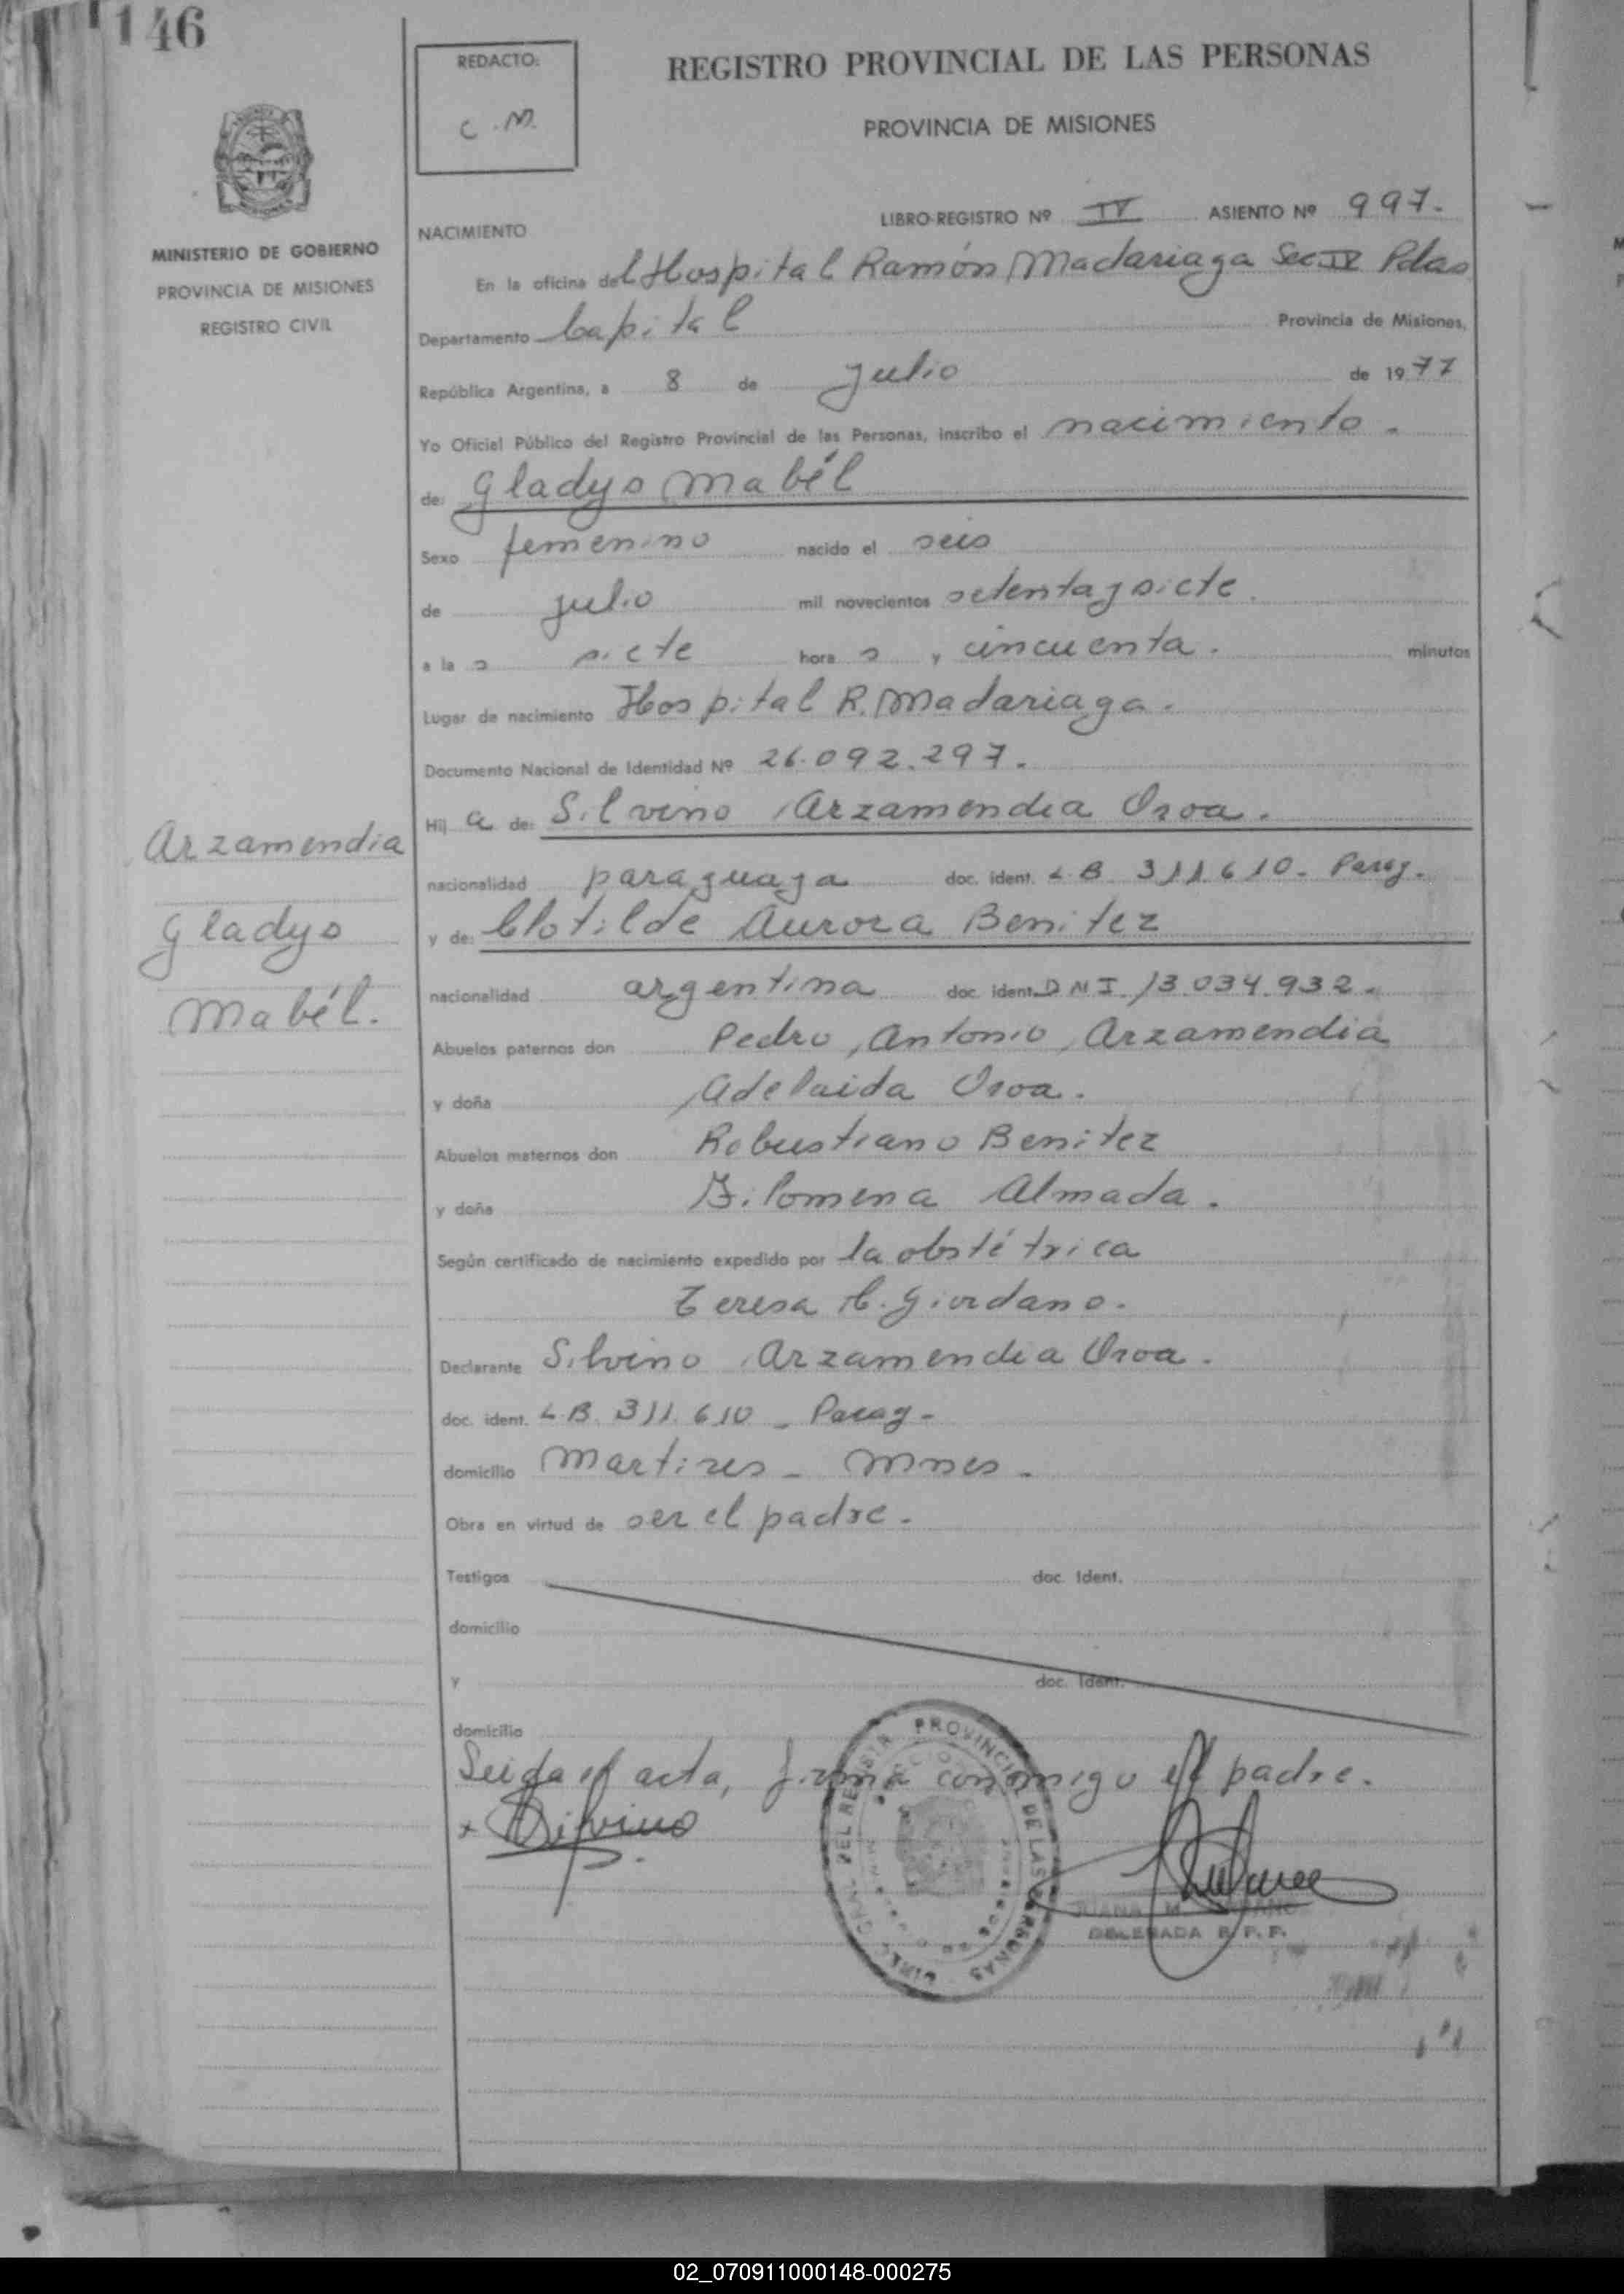 146
REDACTO:
C.M.
REGISTRO PROVINCIAL DE LAS PERSONAS
PROVINCIA DE MISIONES
MINISTERIO DE GOBIERNO
PROVINCIA DE MISIONES
REGISTRO CIVIL
NACIMIENTO
LIBRO-REGISTRO Nº IV ASIENTO Nº 997.
En la oficina del Hospital Ramón Madariaga Sec IV Pdas
Departamento Capital Provincia de Misiones,
República Argentina, a 8 de julio de 1977
Yo Oficial Público del Registro Provincial de las Personas, inscribo el nacimiento.
de: Gladys Mabél
Sexo femenino nacido el seis
de julio mil novecientos setenta y siete.
a la s siete hora s y cincuenta. minutos
Lugar de nacimiento Hospital R. Madariaga.
Documento Nacional de Identidad Nº 26.092.297.
Hij a de: Silvino Arzamendia Oroa.
nacionalidad paraguaya doc. ident. L.B 311.610. Parag.
y de: Clotilde Aurora Benitez
nacionalidad argentina doc. ident. DNI 13.034.932.
Abuelos paternos don Pedro Antonio Arzamendia
y doña Adelaida Oroa.
Abuelos maternos don Robustiano Benitez
y doña Filomena Almada.
Según certificado de nacimiento expedido por la obstétrica
Teresa C. Giordano.
Declarante Silvino Arzamendia Oroa.
doc. ident. L.B. 311.610 - Parag-
domicilio Martires - Mnes.
Obra en virtud de ser el padre.
Testigos doc. Ident.
domicilio
y doc. Ident.
domicilio
Leida el acta, firma conmigo el padre.
x Silvino
PROVINCIAL DE LAS PERSONAS
JUANA M.
DELEGADA R.P.P.
Arzamendia
Gladys
Mabél.
02_070911000148-000275